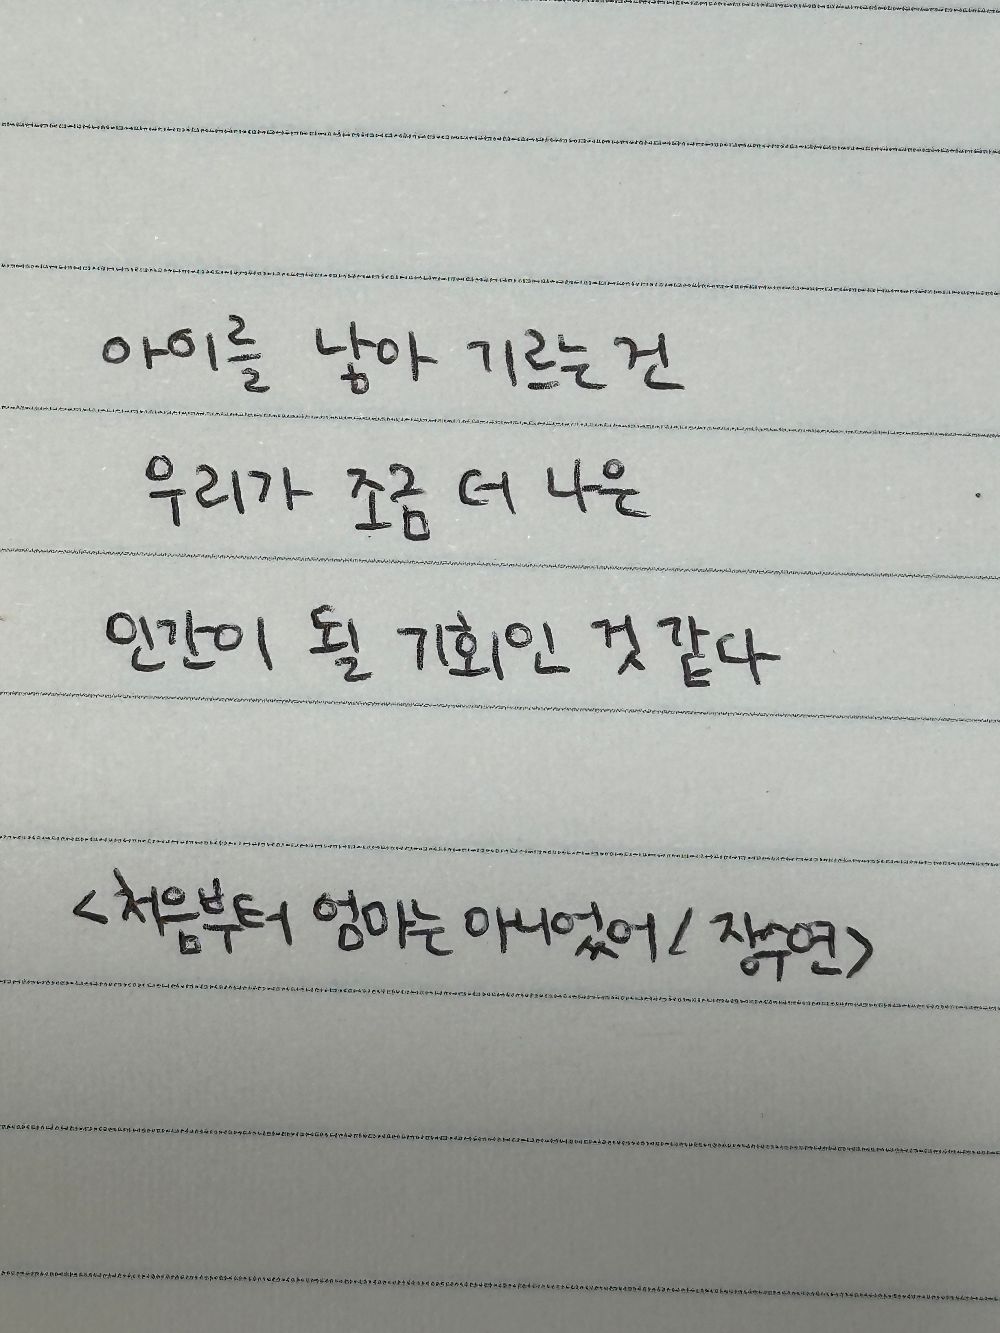 아이를 낳아 기르는 건
우리가 조금 더 나은
인간이 될 기회인 것 같다
<처음부터 엄마는 아니었어 / 장수연>